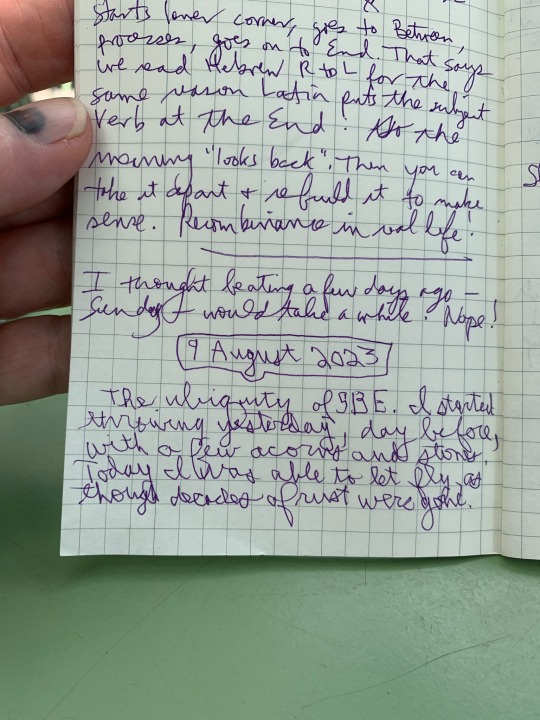 starts lower corner, goes to Between,
processes, goes on to End. That says
we read Hebrew R to L for the
same reason Latin puts the subject
verb at the End. So the
meaning "looks back". Then you can
take it apart + rebuild it to make
sense. Recombinance in real life!
I thought beating a few days ago –
Sunday – would take a while. Nope!
9 August 2023
The ubiquity of SBE. I started
throwing yesterday, day before,
with a few acorns and stones.
Today I was able to let fly as
though decades of rust were gone.